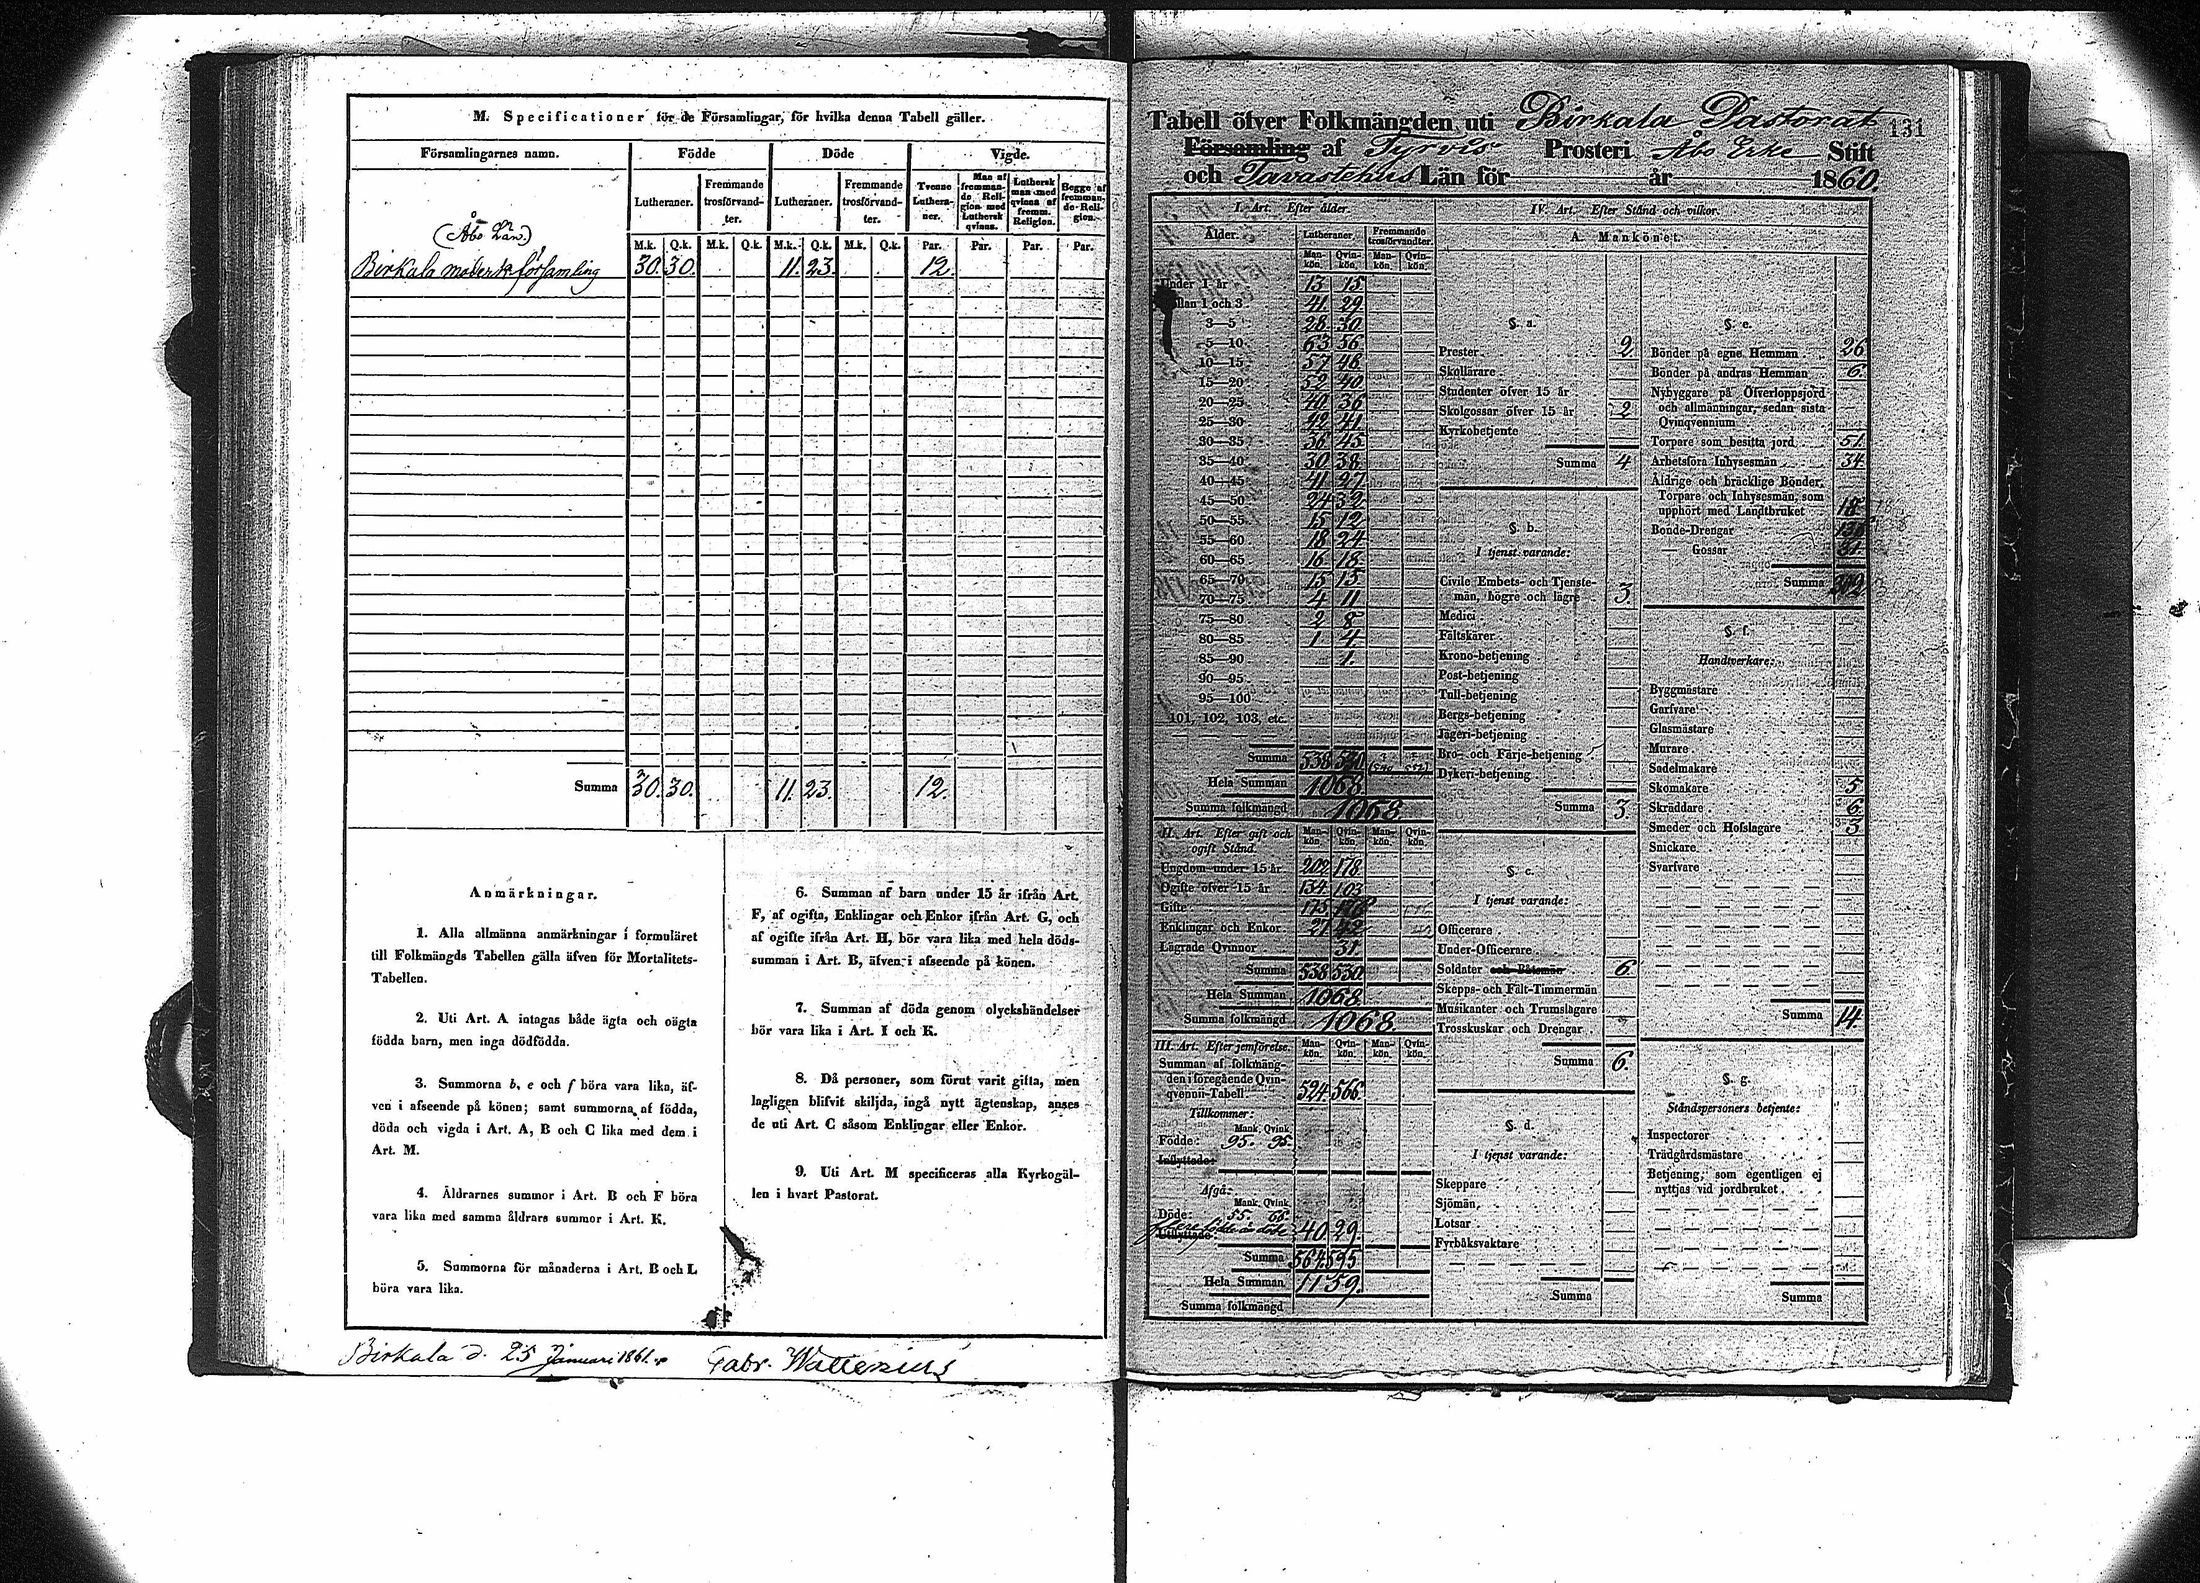 M. Specificationer för de Församlingar, för hvilka denna Tabell gäller.
Församlingarnes namn. Födde Döde Vigde.
Lutheraner. Fremmande trosförvandter. Lutheraner. Fremmande trosförvandter. Tvenne Lutheraner. Man af fremmande Religion med Luthersk qvinna. Luthersk man med qvinna af fremm. Religion. Begge af fremmande Religion.
M.k. Q.k. M.k. Q.k. M.k. Q.k. M.k. Q.k. Par. Par. Par. Par.
(Åbo Län.)
Birkala moderkförsamling 30. 30. 11. 23. 12.
Summa 30. 30. 11. 23. 12.
Anmärkningar.
1. Alla allmänna anmärkningar i formuläret
till Folkmängds Tabellen gälla äfven för Mortalitets-
Tabellen.
2. Uti Art. A intagas både ägta och oägta
födda barn, men inga dödfödda.
3. Summorna b, e och f böra vara lika, äf-
ven i afseende på könen; samt summorna af födda,
döda och vigda i Art. A, B och C lika med dem i
Art. M.
4. Åldrarnes summor i Art. B och F böra
vara lika med samma åldrars summor i Art. K.
5. Summorna för månaderna i Art. B och L
böra vara lika.
6. Summan af barn under 15 år ifrån Art.
F, af ogifta, Enklingar och Enkor ifrån Art. G, och
af ogifte ifrån Art. H, bör vara lika med hela döds-
summan i Art. B, äfven i afseende på könen.
7. Summan af döda genom olyckshändelser
bör vara lika i Art. I och K.
8. Då personer, som förut varit gifta, men
lagligen blifvit skiljda, ingå nytt ägtenskap, anses
de uti Art. C såsom Enklingar eller Enkor.
9. Uti Art. M specificeras alla Kyrkogäl-
len i hvart Pastorat.
Birkala d. 25 Januari 1861.
Gabr. Wallenius
Tabell öfver Folkmängden uti Birkala Pastorat 131
Församling af Tyrvis Prosteri Åbo Erke Stift
och Tavastehus Län för år 1860.
I. Art. Efter ålder
Ålder. Lutheraner Fremmande trosförvandter.
Mankön. Qvinkön. Mankön. Qvinkön.
Under 1 år 13 15
Mellan 1 och 3 41 29
3—5 28 30
5—10 63 56
10—15 57 48
15—20 52 40
20—25 40 36
25—30 42 41
30—35 36 45
35—40 30 38
40—45 41 27
45—50 24 32
50—55 15 12
55—60 18 24
60—65 16 18
65—70 15 15
70—75 4 11
75—80 2 8
80—85 1 4
85—90 1.
90—95
95—100
101, 102, 103, etc.
Summa 538 530
Hela Summan 1068.
Summa folkmängd 1068.
II. Art. Efter gift och ogift Stånd. Mankön. Qvinkön. Mankön. Qvinkön.
Ungdom under 15 år 202 178
Ogifte öfver 15 år 134 103
Gifte 175 176
Enklingar och Enkor 27 42
Lägrade Qvinnor 31.
Summa 538 530
Hela Summan 1068.
Summa folkmängd 1068.
III. Art. Efter jemförelse. Mankön. Qvinkön. Mankön. Qvinkön.
Summan af folkmäng-
den i föregående Qvin-
qvennii-Tabell 524. 566.
Tillkommer:
Mank. Qvink.
Födde: 95. 95.
Inflyttade:
Afgå:
Mank. Qvink.
Döde: 55. 66.
flere födde än döde 40. 29.
Utflyttade:
Summa 564. 595
Hela Summan 1159.
Summa folkmängd
IV. Art. Efter Stånd och vilkor.
A. Mankönet.
§. a.
Prester 2
Skollärare
Studenter öfver 15 år
Skolgossar öfver 15 år 2
Kyrkobetjente
Summa 4
§. b.
I tjenst varande:
Civile Embets- och Tjenste-
män, högre och lägre 3.
Medici
Fältskärer
Krono-betjening
Post-betjening
Tull-betjening
Bergs-betjening
Jägeri-betjening
Bro- och Färje-betjening
Dykeri-betjening
Summa 3.
§. c.
I tjenst varande:
Officerare
Under-Officerare
Soldater och Båtsmän 6.
Skepps- och Fält-Timmermän
Musikanter och Trumslagare
Trosskuskar och Drengar
Summa 6.
§. d.
I tjenst varande:
Skeppare
Sjömän
Lotsar
Fyrbåksvaktare
Summa
§. e.
Bönder på egne Hemman 26
Bönder på andras Hemman 6.
Nybyggare på Öfverloppsjord
och allmänningar, sedan sista
Qvinqvennium
Torpare som besitta jord 51.
Arbetsföra Inhysesmän 34
Åldrige och bräcklige Bönder,
Torpare och Inhysesmän, som
upphört med Landtbruket 18
Bonde-Drengar
— Gossar 31.
Summa 302
§. f.
Handtverkare:
Byggmästare
Garfvare
Glasmästare
Murare
Sadelmakare
Skomakare 5
Skräddare 6.
Smeder och Hofslagare 3
Snickare
Svarfvare
Summa 14.
§. g.
Ståndspersoners betjente:
Inspectorer
Trädgårdsmästare
Betjening, som egentligen ej
nyttjas vid jordbruket
Summa